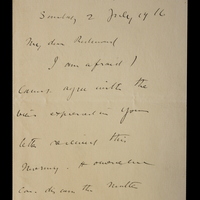 Sunday 2 July 1916
My dear Redmond
I am afraid I
cannot agree with the
view expressed in your
letter received this
morning.
consider the matter